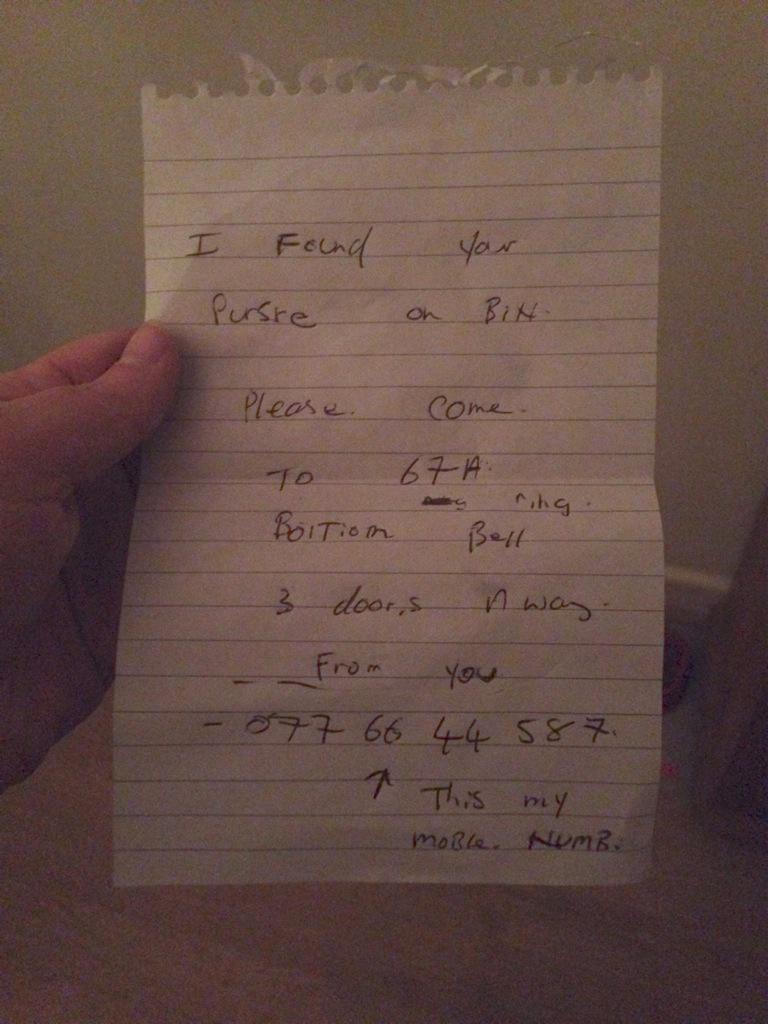 I Found your
Pursre on BIN.
Please. Come.
To 67-A.
ring.
Boittiom Bell
3 door,s A way.
From you
- 077 66 44 587.
↑ This my
moble. NUMB.